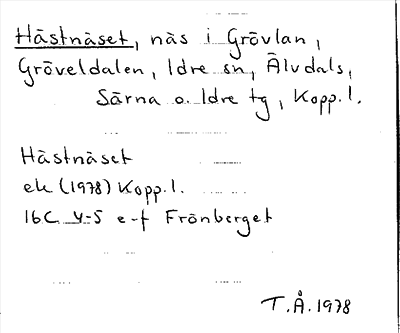 Hästnäset, näs i Grövlan,
Gröveldalen, Idre sn, Älvdals,
Särna o. Idre tg, Kopp.l.
Hästnäset
ek (1978) Kopp.l.
16C 4-5 e-f Frönberget
T.Å. 1978